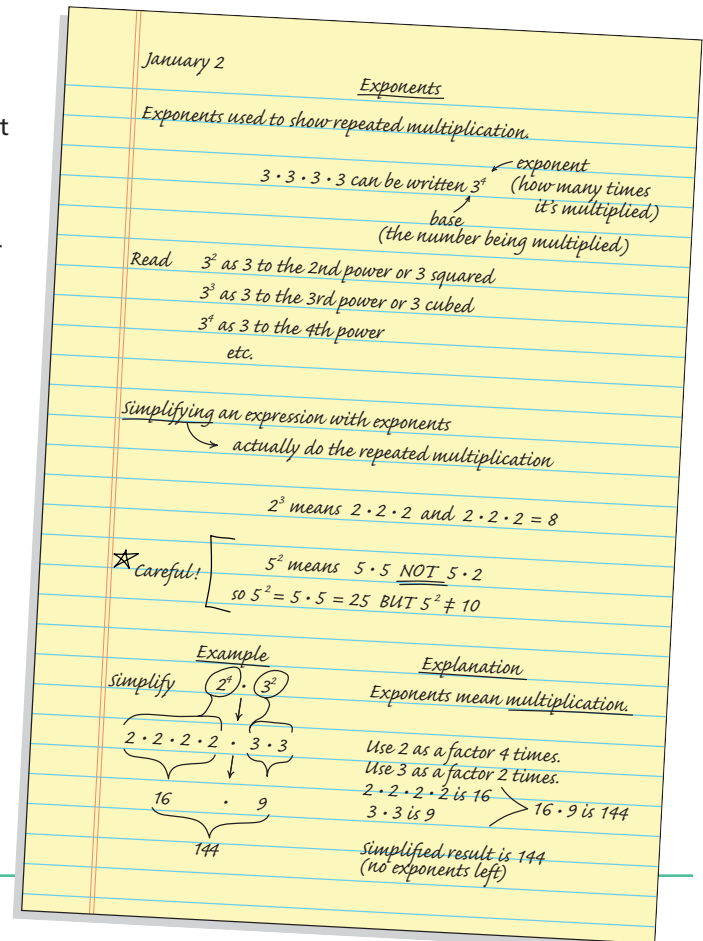 t
January 2
Exponents
Exponents used to show repeated multiplication.
3 · 3 · 3 · 3 can be written 3⁴
exponent
(how many times
it's multiplied)
base
(the number being multiplied)
Read 3² as 3 to the 2nd power or 3 squared
3³ as 3 to the 3rd power or 3 cubed
3⁴ as 3 to the 4th power
etc.
Simplifying an expression with exponents
actually do the repeated multiplication
2³ means 2 · 2 · 2 and 2 · 2 · 2 = 8
Careful!
5² means 5 · 5 NOT 5 · 2
so 5² = 5 · 5 = 25 BUT 5² ≠ 10
Example
Simplify 2⁴ · 3²
2 · 2 · 2 · 2 · 3 · 3
16 · 9
144
Explanation
Exponents mean multiplication.
Use 2 as a factor 4 times.
Use 3 as a factor 2 times.
2 · 2 · 2 · 2 is 16
3 · 3 is 9
16 · 9 is 144
Simplified result is 144
(no exponents left)